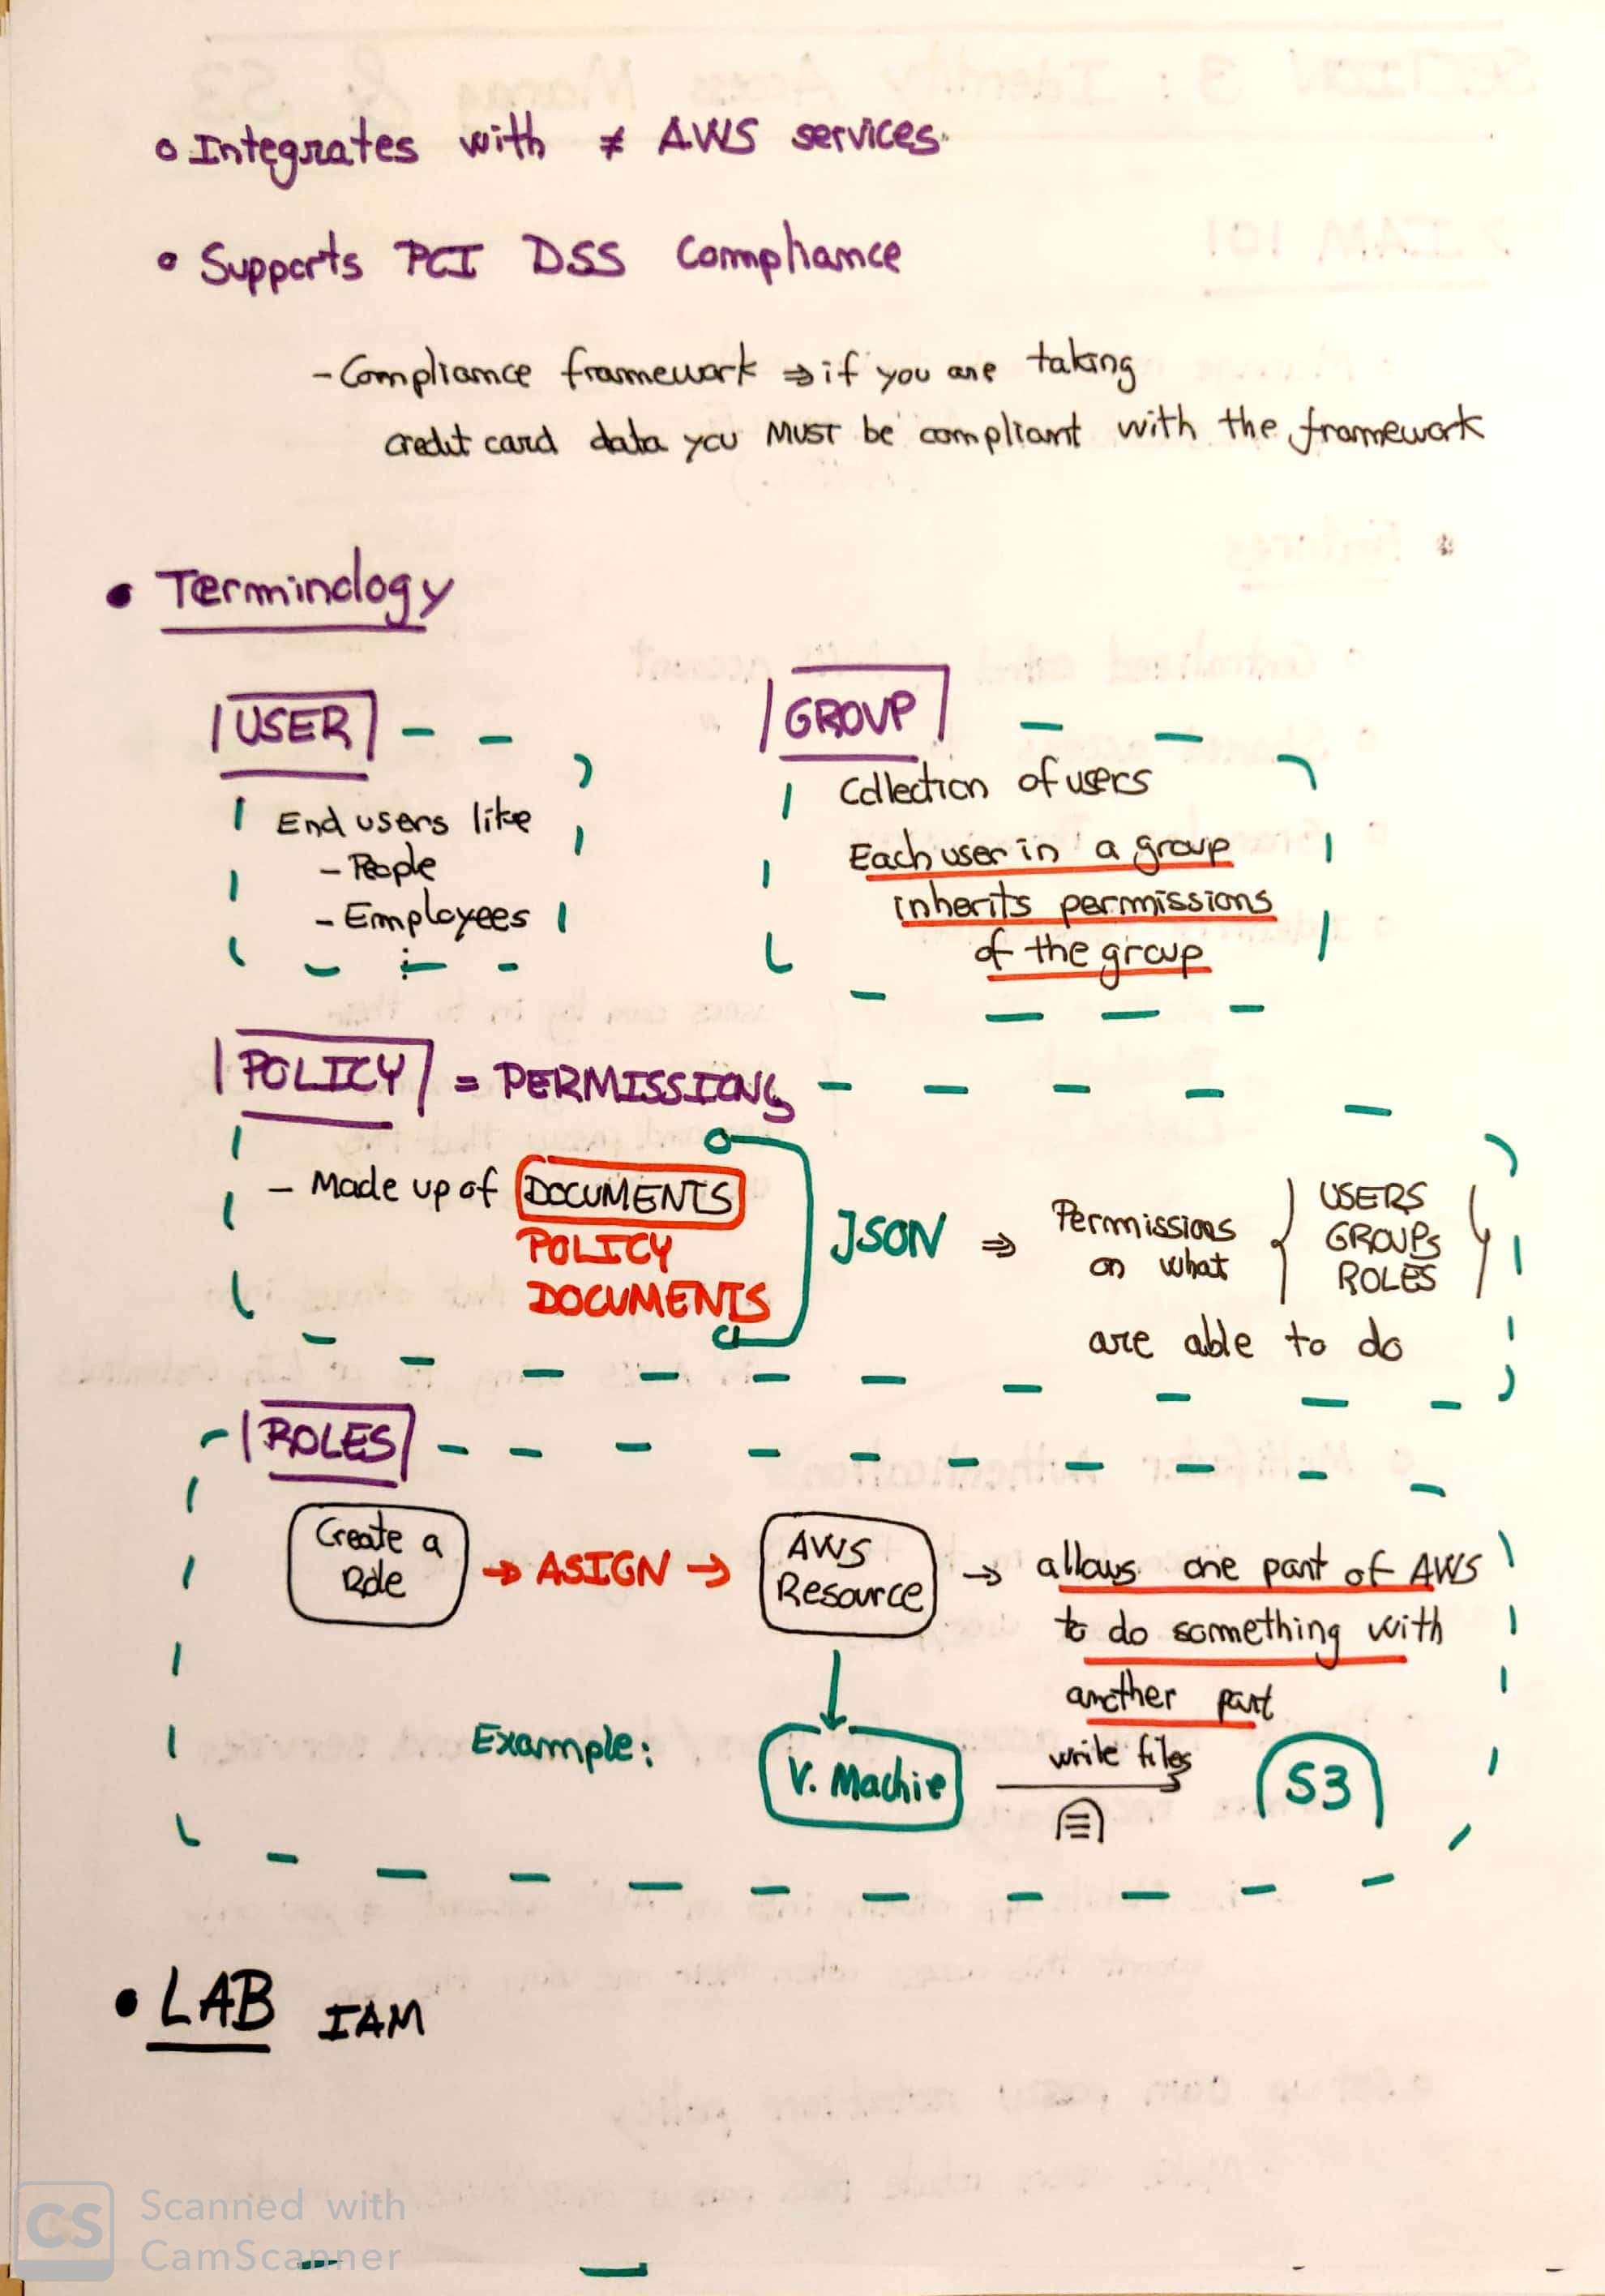 Integrates with ≠ AWS services.
Supports PCI DSS Compliance
- Compliance framework ⇒ if you are taking
credit card data you MUST be compliant with the framework
Terminology
USER
End users like
- People
- Employees
GROUP
Collection of users
Each user in a group
inherits permissions
of the group
POLICY = PERMISSIONS
- Made up of DOCUMENTS
POLICY
DOCUMENTS
JSON ⇒ Permissions
on what
USERS
GROUPS
ROLES
are able to do
ROLES
Create a
Role
→ ASIGN →
AWS
Resource
→ allows one part of AWS
to do something with
another part
Example:
V. Machie
write files
S3
LAB IAM
CS Scanned with
CamScanner